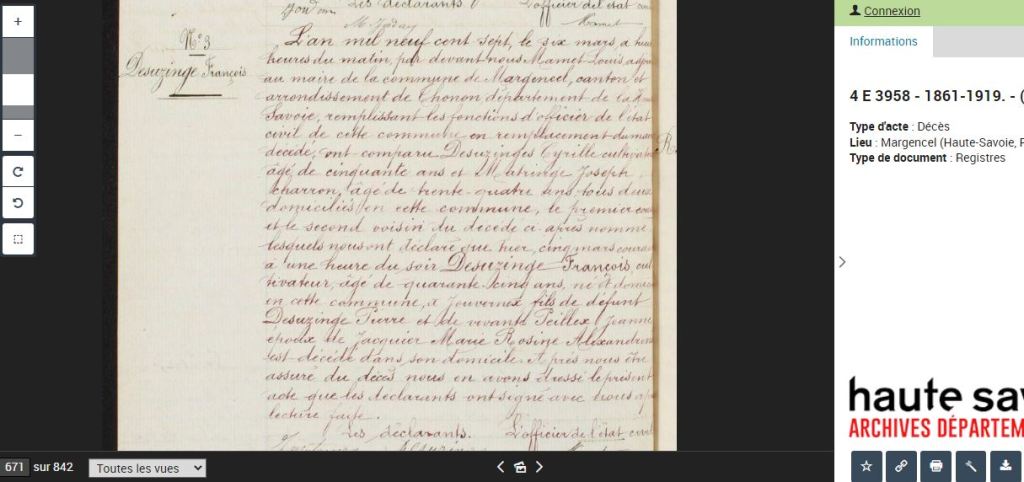 Jouvernex Les déclarants L'officier de l'état civ
M. Joday Mamet
N° 3
Desuzinge François
L'an mil neuf cent sept, le six mars, à hui
heures du matin, par devant nous Mamet Louis, adjoi
au maire de la commune de Margencel, canton et
arrondissement de Thonon, département de la
Savoie, remplissant les fonctions d'officier de l'état
civil de cette commune en remplacement du maire
décédé, ont comparu Desuzinges Cyrille cultivate
âgé de cinquante ans et Matringe Joseph
charron, âgé de trente-quatre ans, tous deux
domiciliés en cette commune, le premier
et le second voisin du décédé ci-après nommé
lesquels nous ont déclaré que hier, cinq mars coura
à une heure du soir Desuzinge François, cul
tivateur, âgé de quarante cinq ans, né et domici
en cette commune, à Jouvernex fils de défunt
Desuzinge Pierre et de vivante Peillex Jeanne
époux de Jacquier Marie Rosine Alexandrine
est décédé dans son domicile. Après nous être
assuré du décès nous en avons dressé le présent
acte que les déclarants ont signé avec nous ap
lecture faite.
Les déclarants. L'officier de l'état civil
671 sur 842
Toutes les vues
Connexion
Informations
4 E 3958 - 1861-1919. - (
Type d'acte : Décès
Lieu : Margencel (Haute-Savoie, F
Type de document : Registres
haute sav
ARCHIVES DÉPARTEM